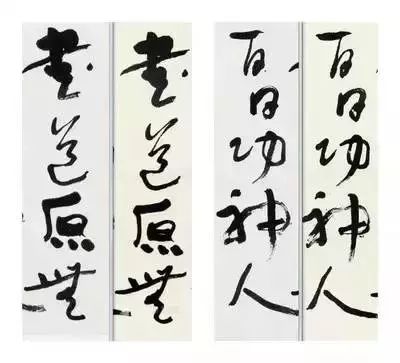 書道原無
書道原無
百日功神人
百日功神人